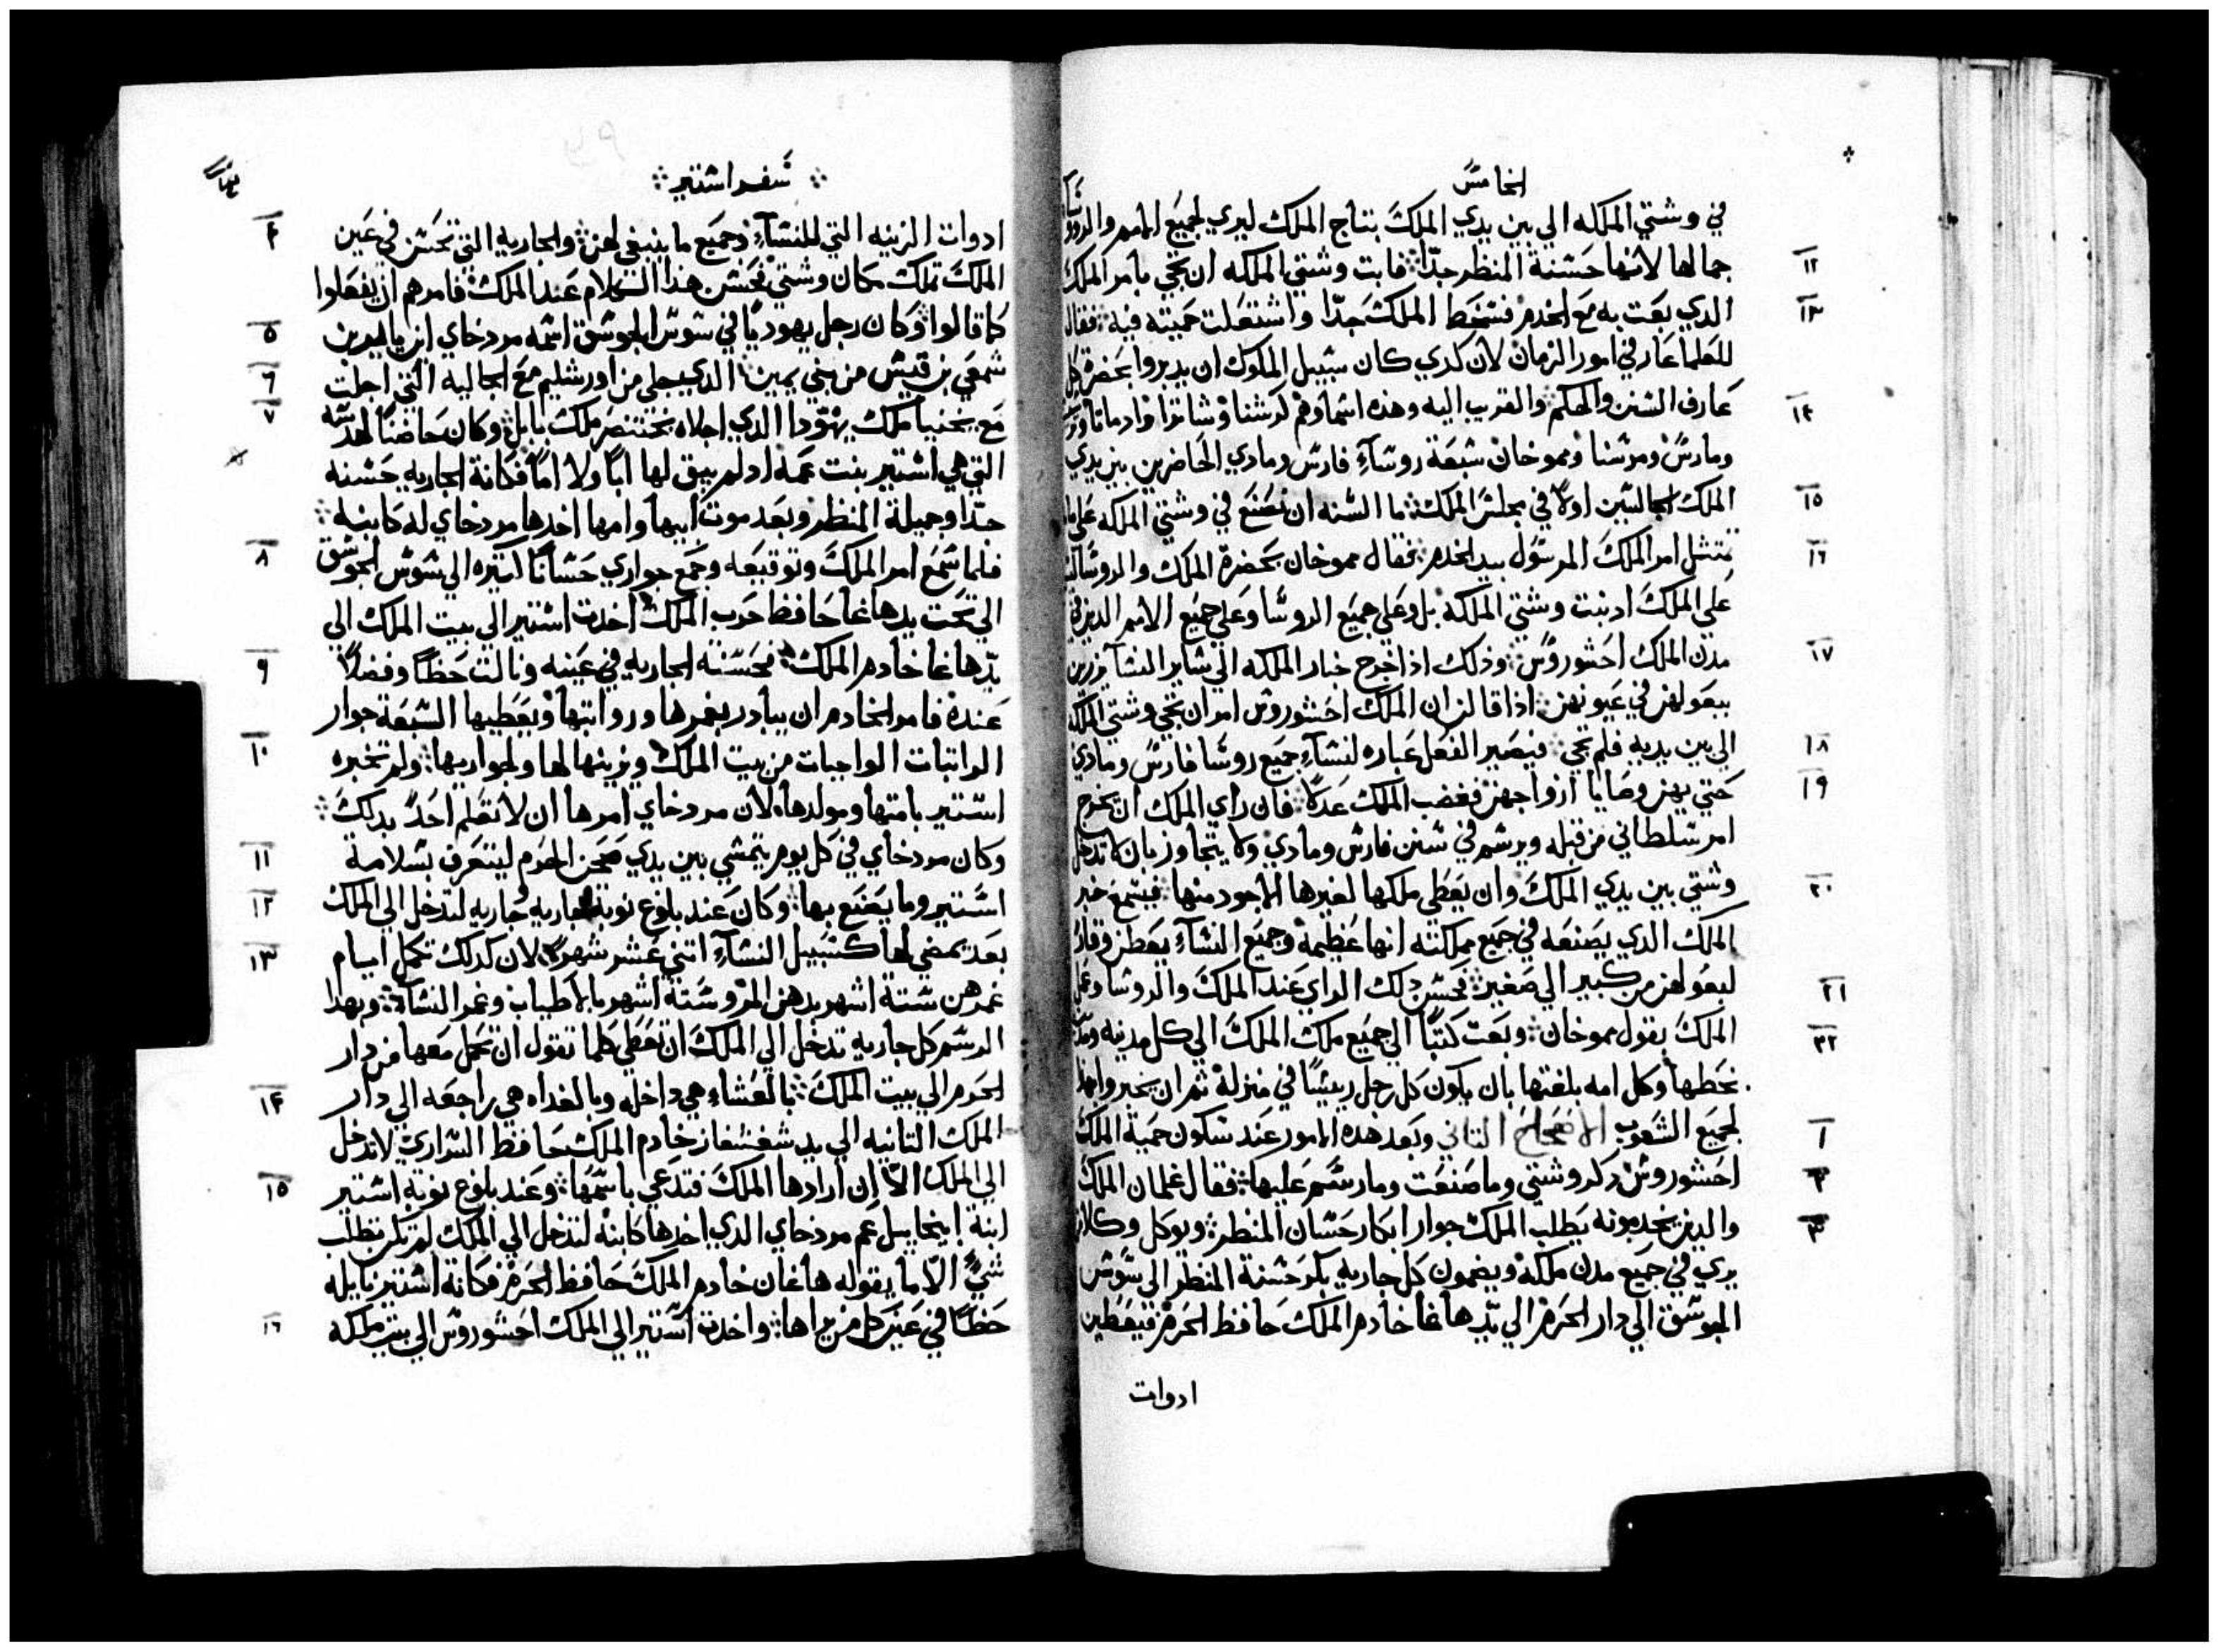 الخامس
في وشتي الملكه الي بين يدي الملك بتاج الملك ليري لجميع الامم والروسا
جمالها لانها حسنة المنظر جدًا فابت وشتي الملكه ان تجي بامر الملك
الدي بعت به مع الخدم فسخط الملك جدًا واشتعلت حميته فيه فقال
للعلما عارفي امور الزمان لان كدي كان سبيل الملوك ان يديروا بحضرة كل
عارف السنن والحكم والقريب اليه وهده اسماوهم كرشنا وشاترا وادماتا
ومارس ومرسنا ومموخان سبعة روسآء فارس ومادي الحاضرين بين يدي
الملك الجالسين اولًا في مجلس الملك ما السنه ان نصنع في وشتي الملكه علي ما
تمتثل امر الملك المرسول بيد الخدم فقال مموخان بحضرة الملك والروسا ليس
علي الملك ادنبت وشتي الملكه بل وعلي جميع الروسا وعلي جميع الامم الدين في
مدن الملك احشوروش وذلك اذا خرج خبار الملكه الي ساير النسآ يزرين
ببعولهن في عيونهن اذا قالن ان الملك احشوروش امر ان تجي وشتي الملكه
الي بين يديه فلم تجي فيصير الفعل عباره لنسآء جميع روسا فارس ومادي
حتي يهن وصايا ازواجهن فغضب الملك عدلًا فان راي الملك ان يخرج
امر سلطاني من قبله ويرسم في سنن فارس ومادي ولا يتجاوز بان لا تدخل
وشتي بين يدي الملك وان يعطي ملكها لغيرها الاجود منها فيسمع خبر
الملك الدي يصنعه في جميع مملكته انها عظيمة وجميع النسآء يعطن وقار
لبعولهن من كبير الي صغير فحسن دلك الراي عند الملك والروسا وعمل
الملك بقول مموخان وبعت كتبًا الي جميع ملك الملك الي كل مدينه
بخطها وكل امه بلغتها بان يكون كل رجل رييسًا في منزله ثم ان يخبروا بهدا
لجميع الشعوب الاصحاح التاني وبعد هده الامور عند سكون حمية الملك
احشوروش دكر وشتي وما صنعت وما رسم عليها فقال غلمان الملك
والدين يخدمونه يطلب الملك جوار ابكار حسان المنظر ويوكل وكلا
يري في جميع مدن ملكه ويضمون كل جاريه بكر حسنة المنظر الي سوس
الجوسق الي دار الحرم الي يد هاغا خادم الملك حافظ الحرم فيعطين
ادوات
١٢
١٣
١٤
١٥
١٦
١٧
١٨
١٩
٢٠
٢١
٢٢
١
٢
٣
سفر استير
ادوات الزينه التي للنسآء وجميع ما ينبغي لهن والجاريه التي تحسن في عين
الملك تملك مكان وشتي فحسن هدا الكلام عند الملك فامرهم ان يفعلوا
كما قالوا وكان رجل يهوديًا في سوس الجوسق اسمه مردخاي ابن يامير بن
شمعي بن قيس من بني يمين الدي جلي من اورشليم مع الجاليه التي اجلت
مع يخنيا ملك يهودا الدي اجلاه بختنصر ملك بابل وكان حاضنًا لهدسه
التي هي استير بنت عمه اد لم يبق لها ابًا ولا امًا فكانة الجاريه حسنه
جدًا وجميلة المنظر وبعد موت ابيها وامها اخدها مردخاي له كابنه
فلما سمع امر الملك وتوقيعه وجمع جواري حسانًا كتيره الي سوس الجوسق
الي تحت يد هاغا حافظ حرب الملك اخدت استير الي بيت الملك الي
يد هاغا خادم الملك فحسنة الجاريه في عينه ونالت حظًا وفضلًا
عنده فامر الخادم ان يبادر بغمرها ورواتبها ويعطيها السبعة جوار
الراتبات الواجبات من بيت الملك ويزينها لها ولجواريها ولم تخبره
استير بامتها ومولدها لان مردخاي امرها ان لا تعلم احدًا بدلك
وكان مردخاي في كل يوم يتمشي بين يدي صحن الحرم ليتعرف بسلامة
استير وما يصنع بها وكان عند بلوغ نوبة جاريه جاريه لتدخل الي الملك
بعد يمضي لها كسبيل النسآء اتني عشر شهرًا لان كدلك تكمل ايام
غمرهن ستة اشهر بدهن المر وستة اشهر بالاطياب وغمر النسآء وبهدا
الرسم كل جاريه تدخل الي الملك ان تعطي كلما تقول ان تحمل معها من دار
الحرم الي بيت الملك بالعشاء هي داخله وبالغداه هي راجعه الي دار
الملك التانيه الي يد شغشغاز خادم الملك حافظ السراري لا تدخل
الي الملك الا ان ارادها الملك فتدعي باسمها وعند بلوغ نوبة استير
ابنة ابيخاييل عم مردخاي الدي اخدها كابنه لتدخل الي الملك لم تكن تطلب
شيً الا ما يقوله هاغان خادم الملك حافظ الحرم فكانة استير نايله
حظًا في عين كل من يراها واخدت استير الي الملك احشوروش الي بيت ملكه
٤
٥
٦
٧
٨
٩
١٠
١١
١٢
١٣
١٤
١٥
١٦